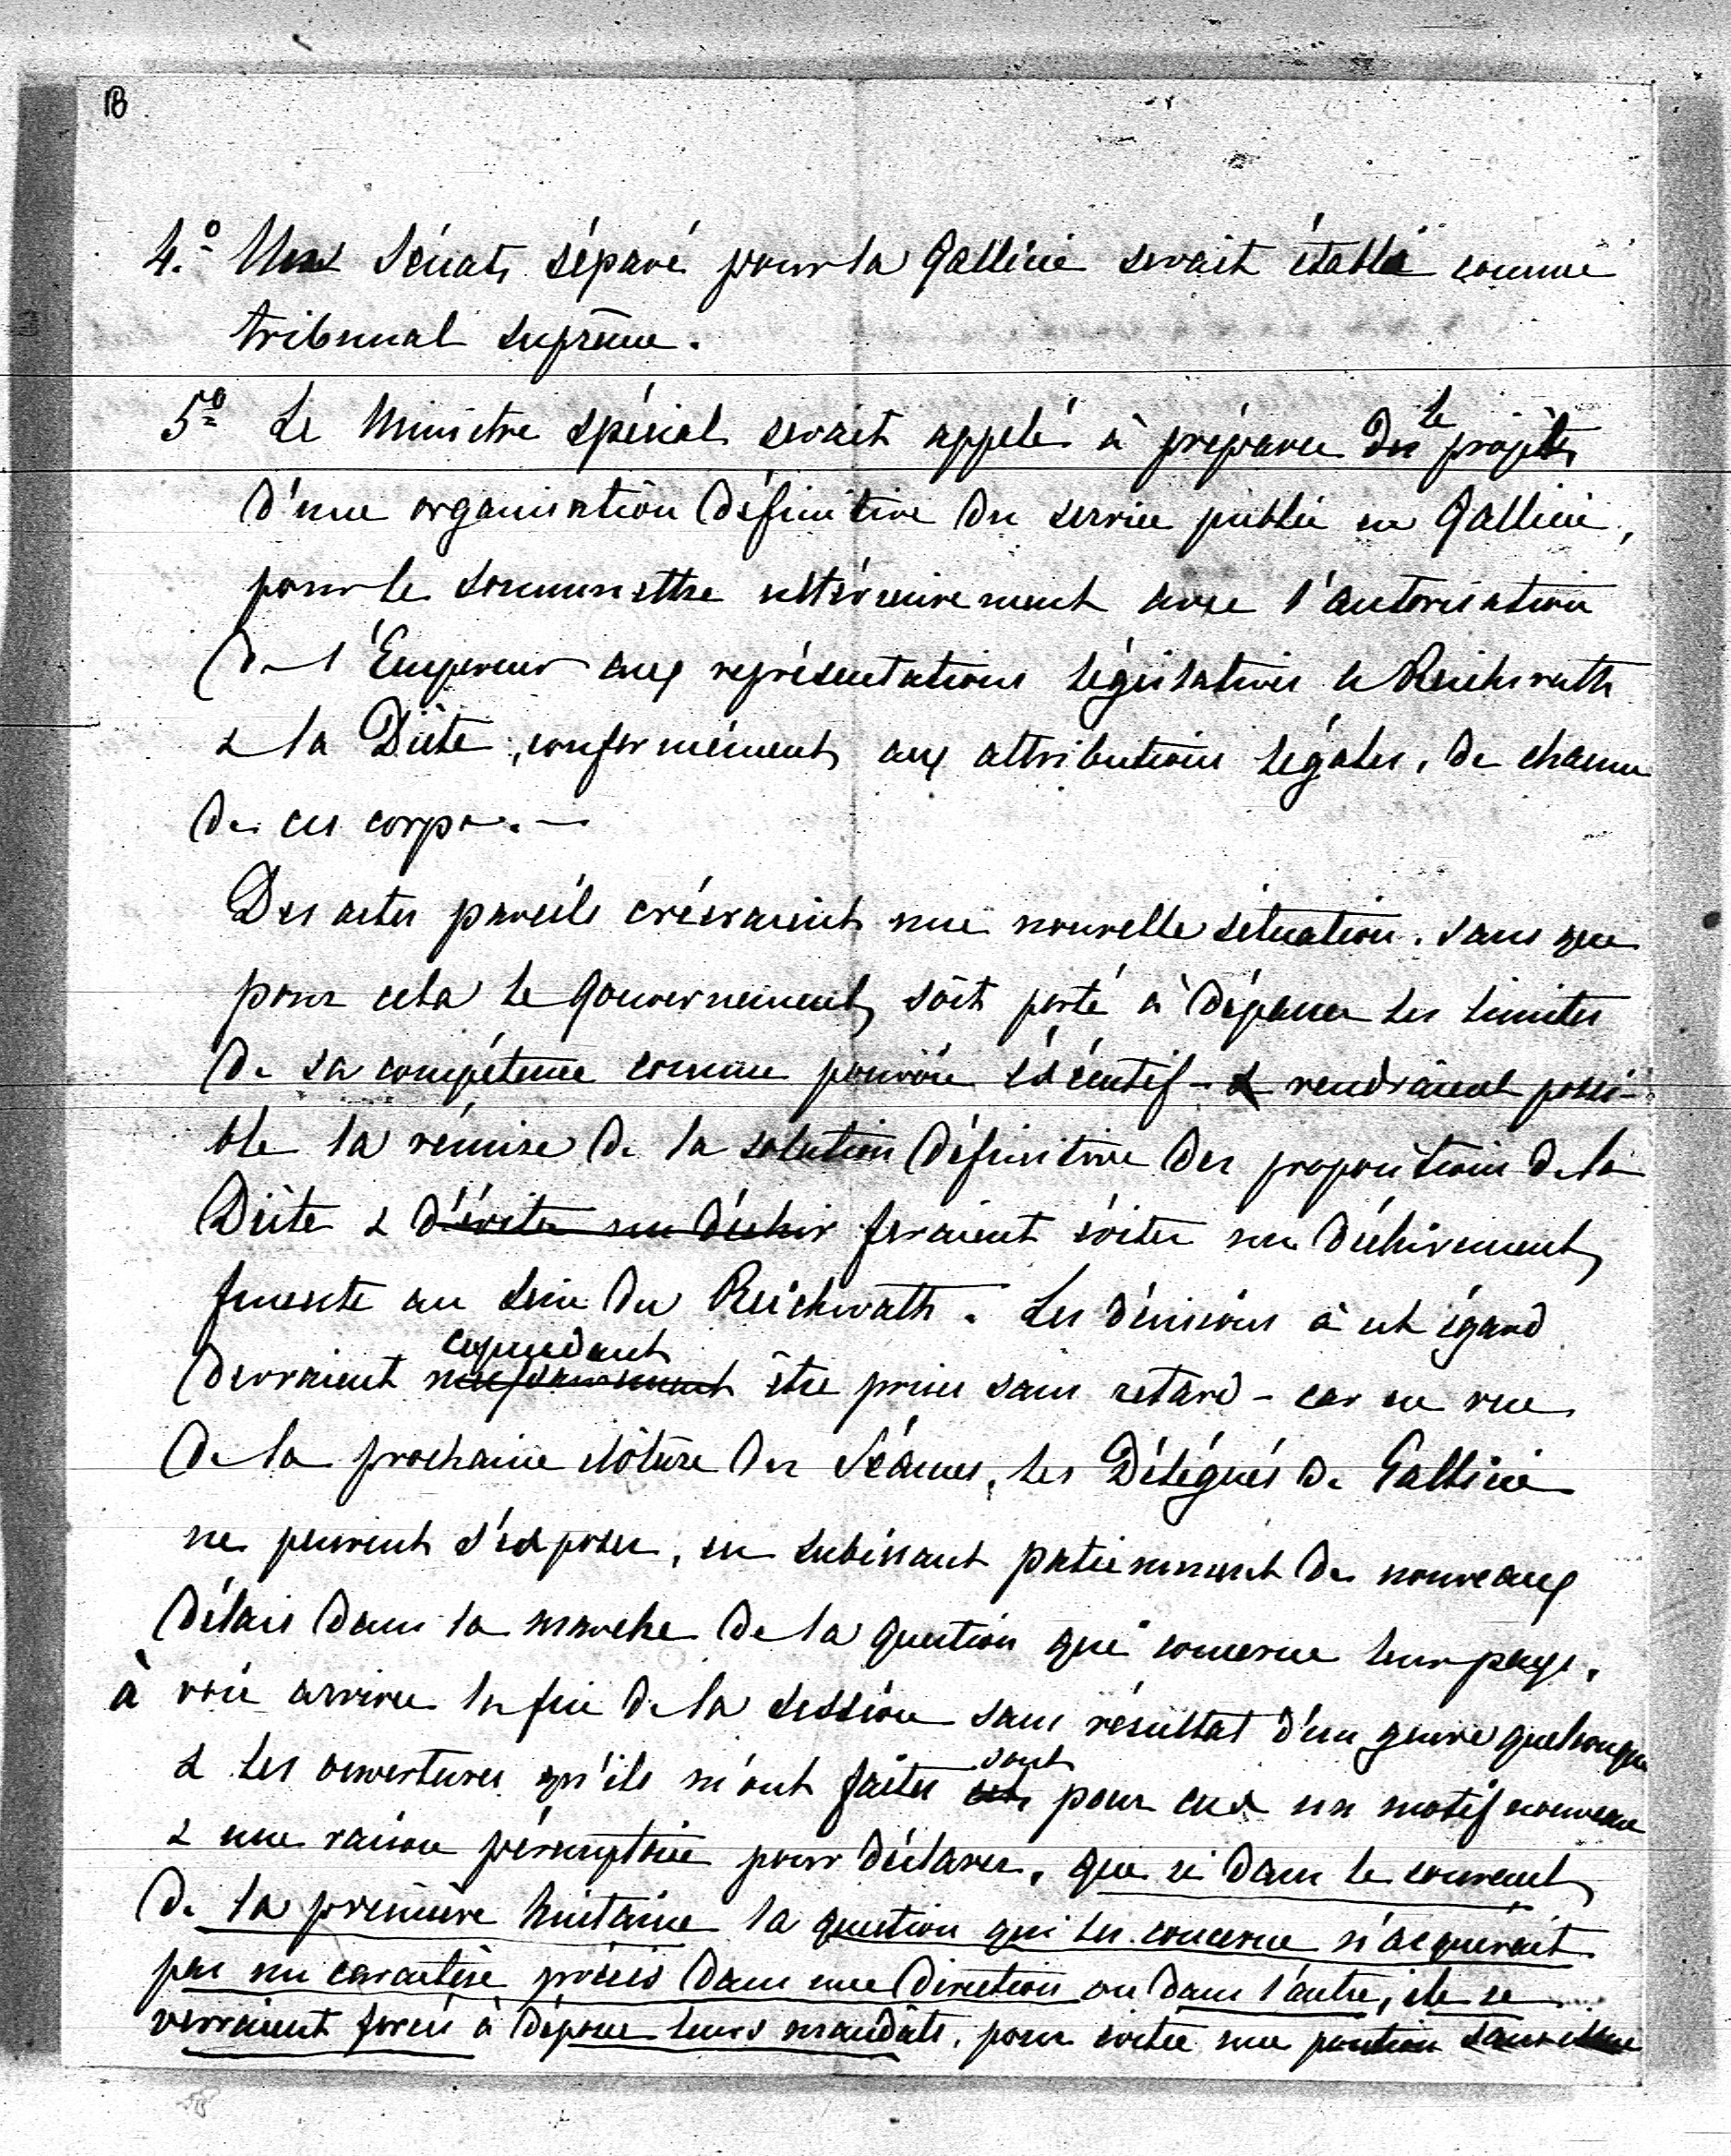 18
4.º Un Sénat séparé pour la Gallicie serait établi comme
tribunal suprême.
5º Le Ministre spécial serait appelé à préparer des le projets
d'une organisation définitive du service public en Gallicie,
pour le soummettre ultérieurement avec l'autorisation
de l'Empereur aux représentations législatives le Reichsrath
& la Diète, conformément aux attributions légales, de chacun
de ces corps. —
Des actes pareils créeraient une nouvelle situation, sans que
pour cela le gouvernement soit porté à dépasser les limites
de sa compétence comme pouvoir éxécutif - & rendraient possi-
ble la remise de la solution définitive des propositions de la
Diète & d'éviter un déchir feraient éviter un déchirement
funeste au sein du Reichsrath. Les décisions à cet égard
cependant
devraient nécessairement être prises sans retard - car en vue
de la prochaine clôture des Séances, les Délégués de Gallicie
ne peuvent s'exposer, en subissant patiemment de nouveaux
délais dans la marche de la question qui concerne leur pays,
à voir arriver la fin de la session sans résultat d'un genre quelconque
& les ouvertures qu'ils m'ont faites sont pour eux un motif nouveau
& une raison péremptoire pour déclarer, que si dans le courant
de la première huitaine la question qui les concerne n'acquerait
pas un caractère précis dans une direction ou dans l'autre, ils se
verraient forcés à déposer leurs mandats, pour éviter une position sans issue